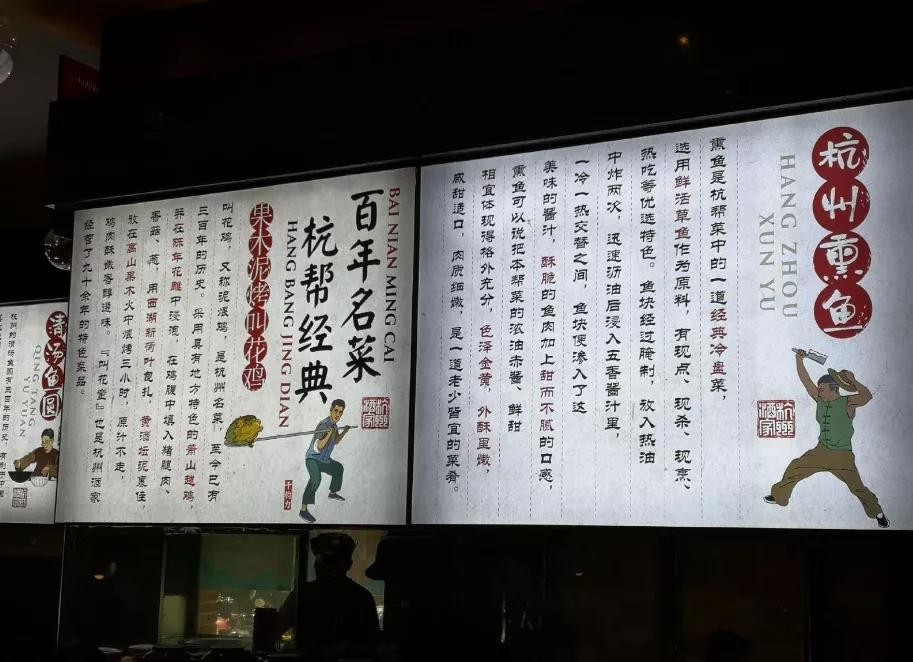 杭州熏鱼
HANG ZHOU
XUN YU
熏鱼是杭帮菜中的一道经典冷盘菜，
选用鲜活草鱼作为原料，有现点、现杀、现烹、
热吃等优选特色。鱼块经过腌制，放入热油
中炸两次，迅速沥油后浸入五香酱汁里，
一冷一热交替之间，鱼块便渗入了这
美味的酱汁，酥脆的鱼肉加上甜而不腻的口感，
熏鱼可以说把本帮菜的浓油赤酱、鲜甜
相宜体现得格外充分，色泽金黄，外酥里嫩，
咸甜适口，肉质细嫩，是一道老少皆宜的菜肴。
杭州酒家
BAI NIAN MING CAI
百年名菜
杭帮经典
HANG BANG JING DIAN
果木泥烤叫花鸡
叫花鸡，又称泥煨鸡，是杭州名菜，至今已有
三百年的历史。采用具有地方特色的萧山越鸡，
并在陈年花雕中浸泡，在鸡腹中填入猪腿肉、
香菇、葱，用西湖新荷叶包扎，黄酒坛泥裹住，
放在高山果木火中煨烤三小时，原汁不走，
鸡肉酥嫩香醇透味。『叫花童』也是杭州酒家
经营了九十余年的特色菜品。
杭州酒家
清汤鱼圆
QING TANG
YU YUAN
杭州的清汤鱼圆有三百年的历史，